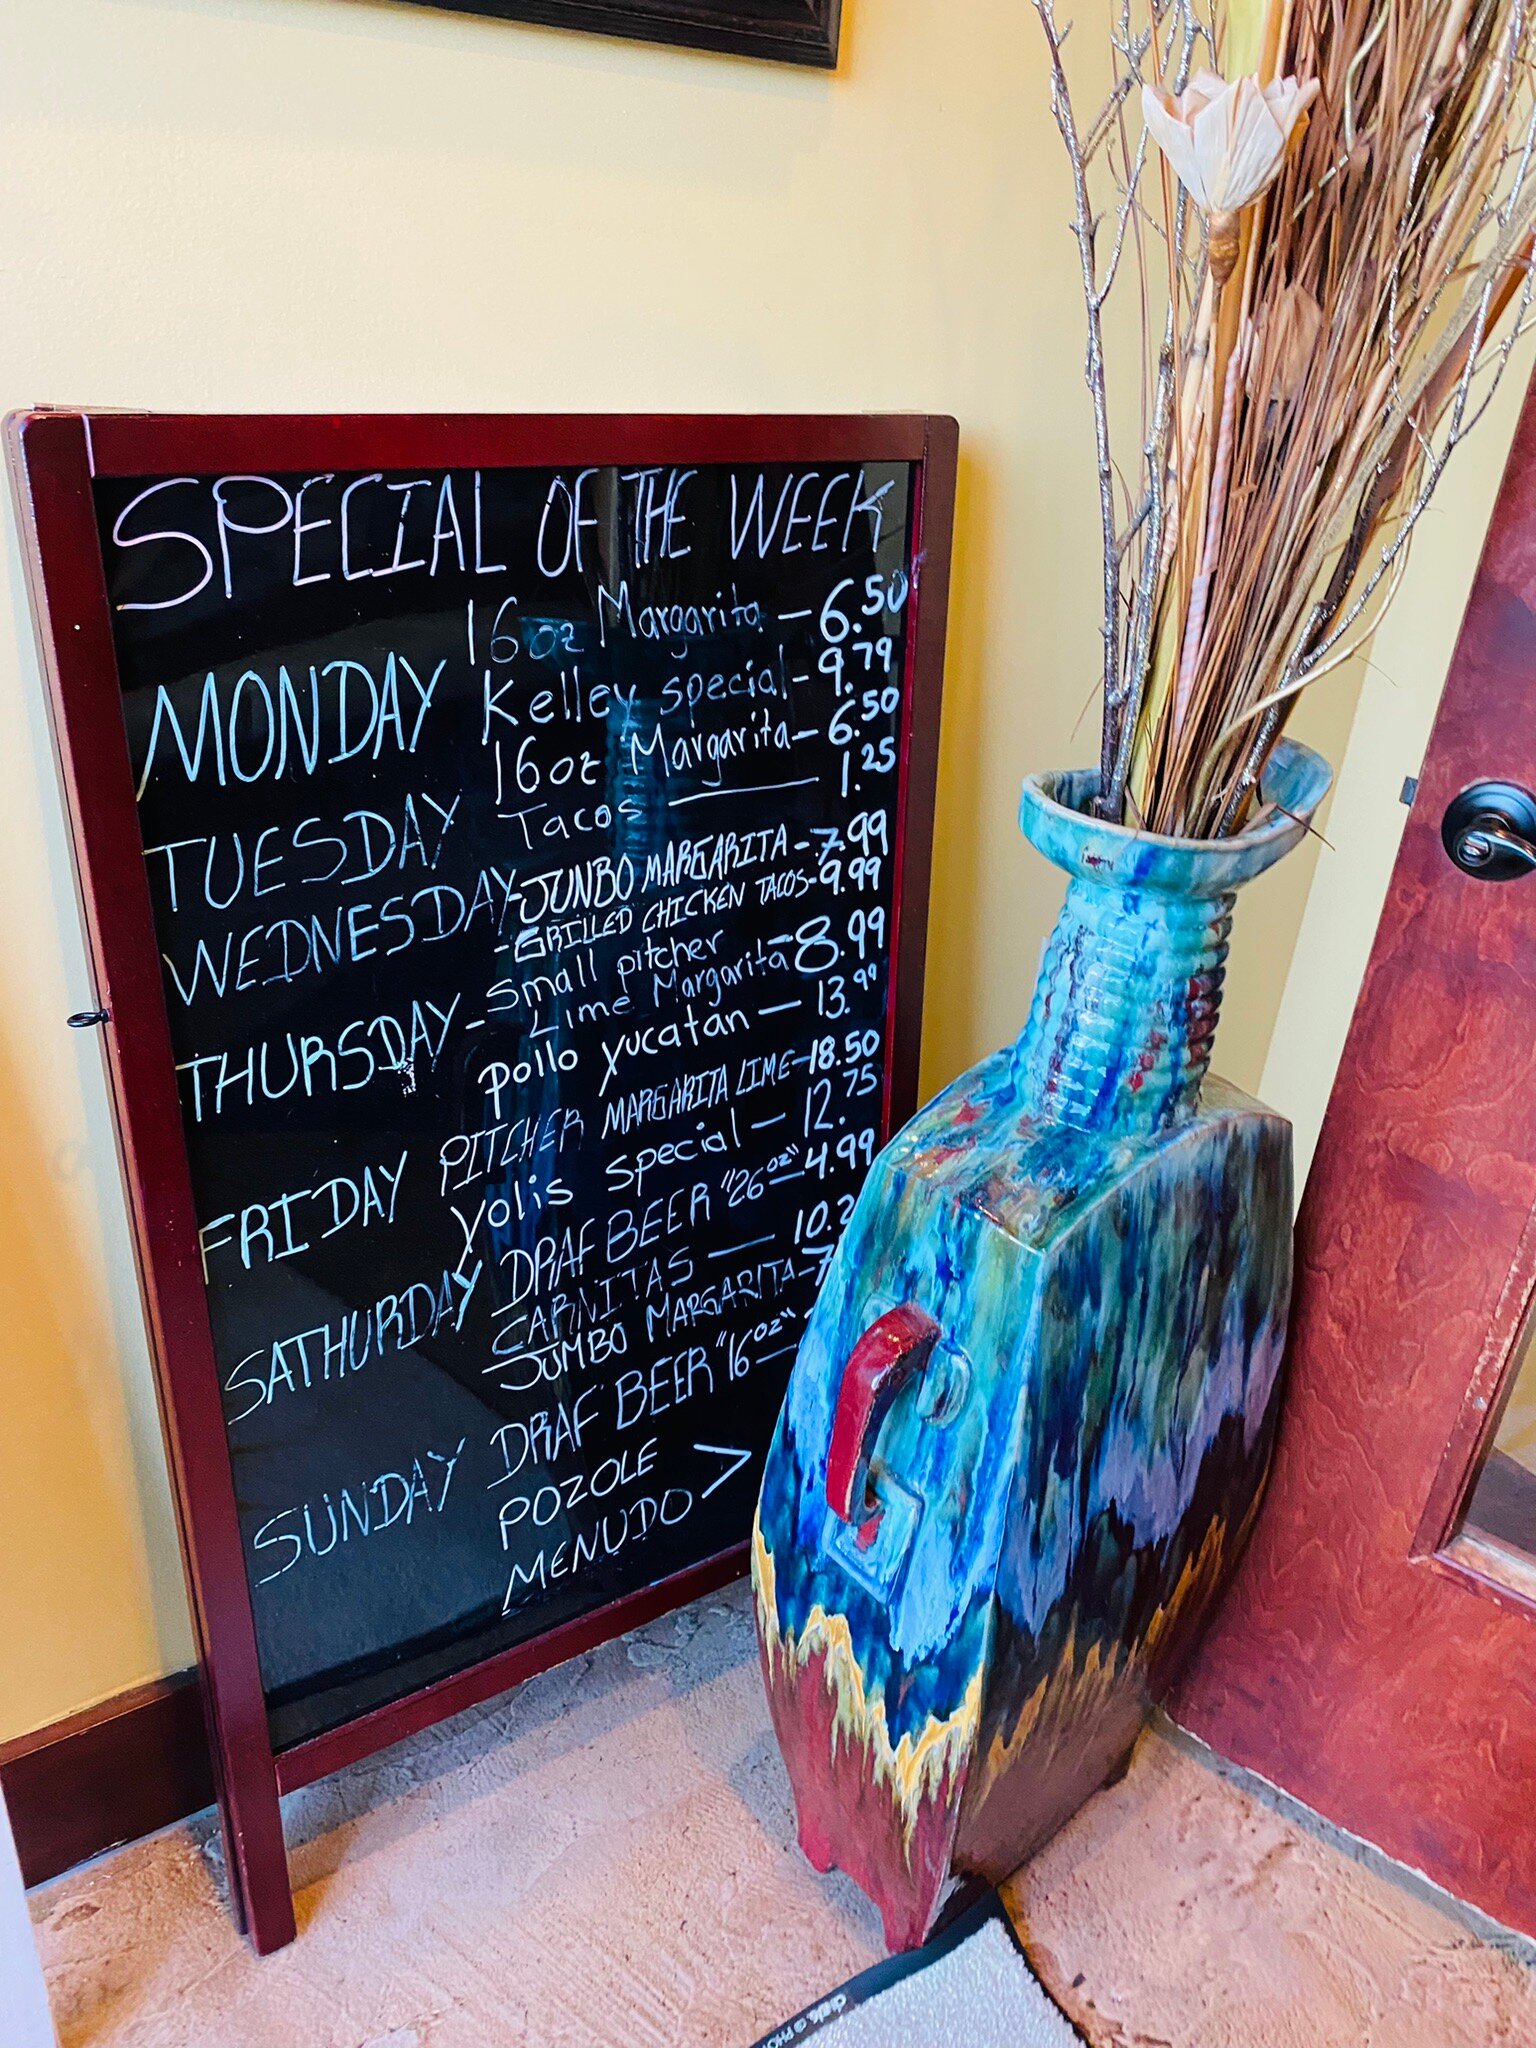 SPECIAL OF THE WEEK
16oz Margarita — 6.50
MONDAY Kelley special - 9.79
16oz Margarita - 6.50
TUESDAY Tacos — 1.25
WEDNESDAY - JUNBO MARGARITA - 7.99
- GRILLED CHICKEN TACOS - 9.99
THURSDAY - Small pitcher
Lime Margarita - 8.99
pollo yucatan — 13.99
FRIDAY PITCHER MARGARITA LIME - 18.50
yolis special — 12.75
SATHURDAY DRAF BEER "26oz" - 4.99
CARNITAS — 10.2
JUMBO MARGARITA - 7
SUNDAY DRAF BEER "16oz" -
POZOLE
MENUDO >